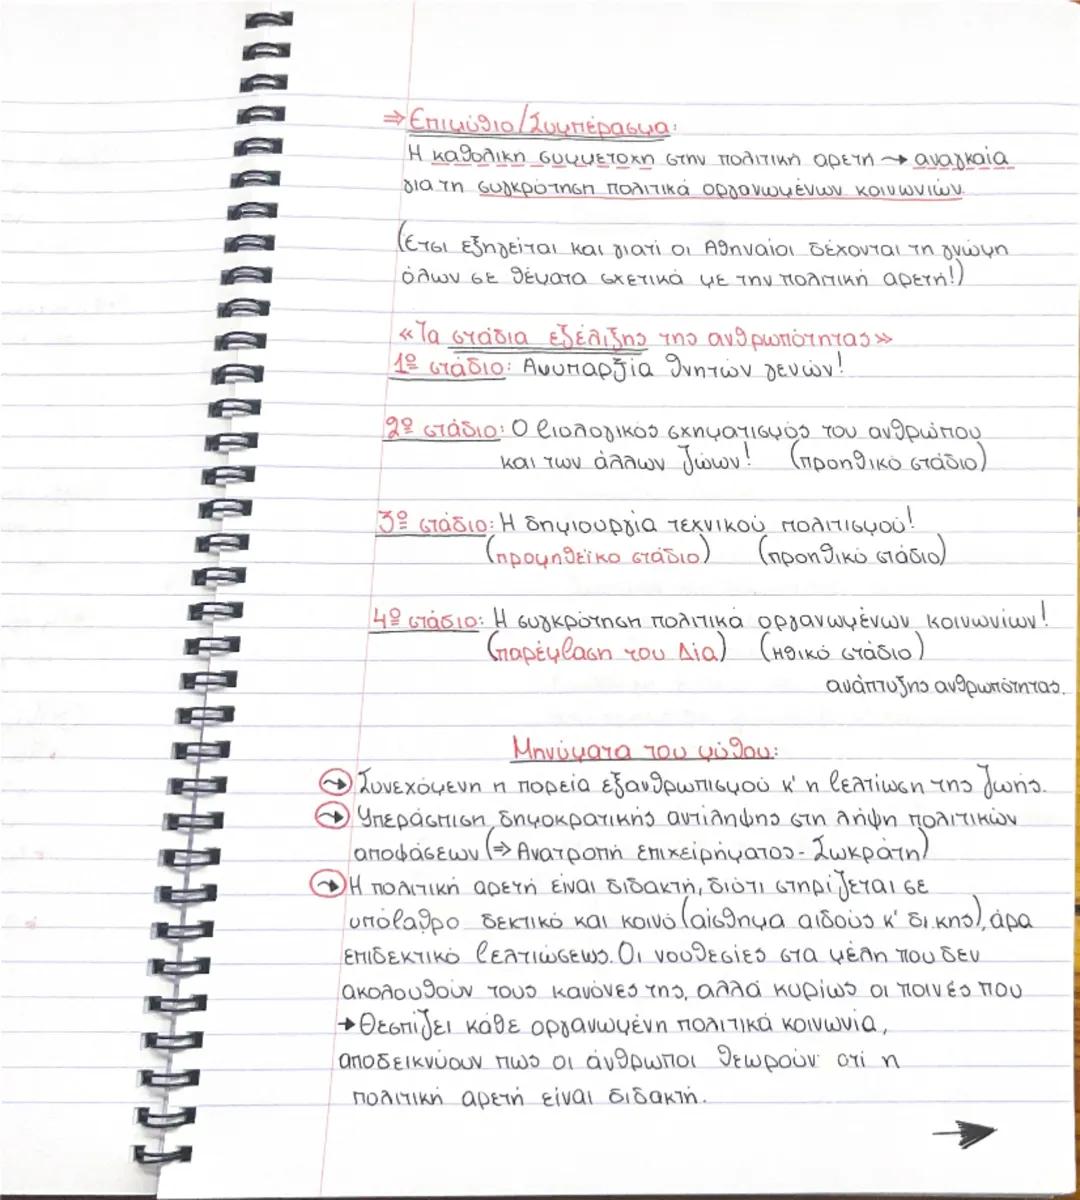 ⇒ Επιμύθιο/Συμπέρασμα:
Η καθολική συμμετοχή στην πολιτική αρετή → αναγκαία
για τη συγκρότηση πολιτικά οργανωμένων κοινωνιών.
(Έτσι εξηγείται και γιατί οι Αθηναίοι δέχονται τη γνώμη
όλων σε θέματα σχετικά με την πολιτική αρετή!)
«Τα στάδια εξέλιξης της ανθρωπότητας»
1º στάδιο: Ανυπαρξία θνητών γενών!
2º στάδιο: Ο βιολογικός σχηματισμός του ανθρώπου
και των άλλων ζώων! (προηθικό στάδιο)
3º στάδιο: Η δημιουργία τεχνικού πολιτισμού!
(προμηθεϊκο στάδιο) (προηθικό στάδιο)
4º στάδιο: Η συγκρότηση πολιτικά οργανωμένων κοινωνίων!
(παρέμβαση του Δία) (ηθικό στάδιο)
ανάπτυξης ανθρωπότητας.
Μηνύματα του μύθου:
→ Συνεχόμενη η πορεία εξανθρωπισμού κ' η βελτίωση της ζωής.
→ Υπεράσπιση δημοκρατικής αντίληψης στη λήψη πολιτικών
αποφάσεων (⇒ Ανατροπή επιχειρήματος - Σωκράτη)
→ Η πολιτική αρετή είναι διδακτή, διότι στηρίζεται σε
υπόβαθρο δεκτικό και κοινό (αίσθημα αιδούς κ' δίκης), άρα
επιδεκτικό βελτιώσεως. Οι νουθεσίες στα μέλη που δεν
ακολουθούν τους κανόνες της, αλλά κυρίως οι ποινές που
→ Θεσπίζει κάθε οργανωμένη πολιτικά κοινωνία,
αποδεικνύουν πως οι άνθρωποι θεωρούν οτί η
πολιτική αρετή είναι διδακτή.